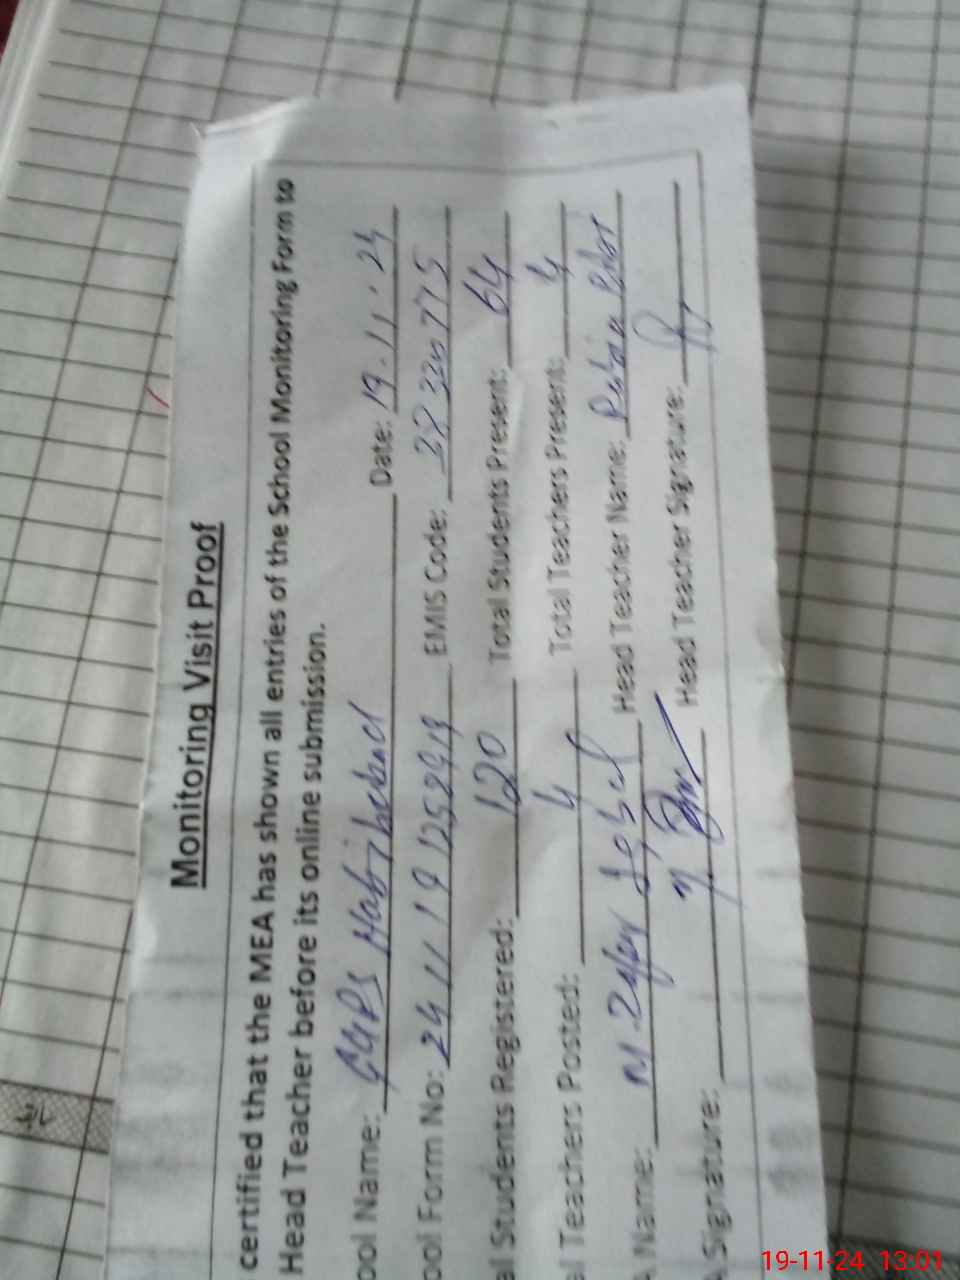 Monitoring Visit Proof
certified that the MEA has shown all entries of the School Monitoring Form to
Head Teacher before its online submission.
ool Name: GGPS Habib Date: 19.11.24
ool Form No: EMIS Code:
al Students Registered: 120 Total Students Present: 64
al Teachers Posted: 4 Total Teachers Present: 4
A Name: M. Zafar Iqbal Head Teacher Name: Rubia
A Signature: Head Teacher Signature:
19-11-24 13:01